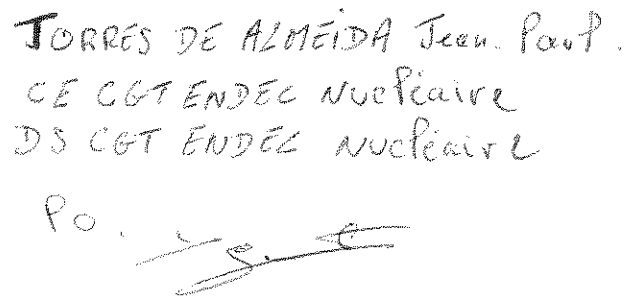 TORRES DE ALMEIDA Jean. Paul.
CE CGT ENDEL Nucléaire
DS CGT ENDEL Nucléaire
PO.